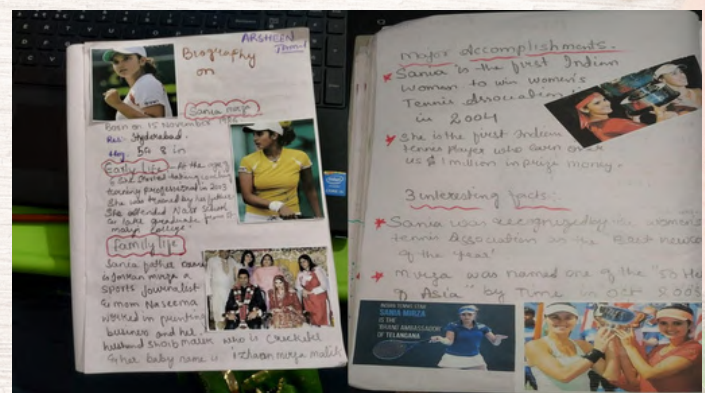 ARSHEEN
Biography
on
Sania mirza
Born on 15 November 1986
Res:- Hyderabad.
5ft 8 in
Early life - At the age of
6 she started taking coaching
turning professional in 2003
She was trained by his father
She attended Nasr School
& later graduate from
mary's college.
family life
Sania father name
is Imran mirza a
sports journalist
& mom Naseema
worked in printing
business and her
husband Shoib malik who is Cricketer
& her baby name is izhaan mirza malik
major Accomplishments.
Sania is the first Indian
woman to win women's
Tennis Association
in 2004
She is the first Indian
tennis player who earn over
US $1 million in prize money.
3 interesting facts:-
Sania was recognized by the women's
tennis Association as the
of the year'
mirza was named one of the "50 He
of Asia" by Time in oct 2005
INDIAN TENNIS STAR
SANIA MIRZA
IS THE
BRAND AMBASSADOR
OF TELANGANA